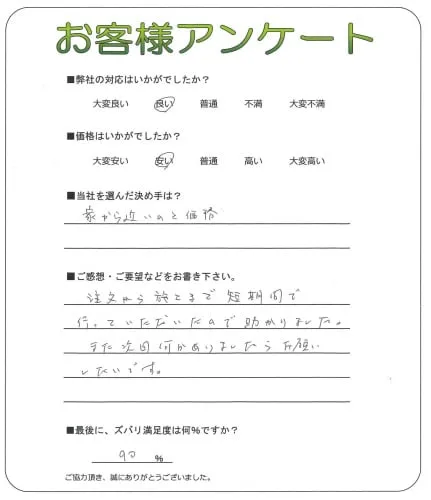 お客様アンケート
■弊社の対応はいかがでしたか？
大変良い 良い 普通 不満 大変不満
■価格はいかがでしたか？
大変安い 安い 普通 高い 大変高い
■当社を選んだ決め手は？
家から近いのと価格
■ご感想・ご要望などをお書き下さい。
注文から施工まで短期間で
行っていただいたので助かりました。
また次回何かありましたらお願い
したいです。
■最後に、ズバリ満足度は何%ですか？
90 %
ご協力頂き、誠にありがとうございました。